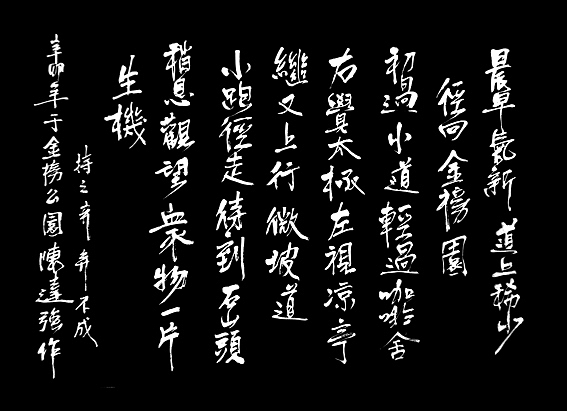 晨早氣新 道上稀少
徑向金榜園
初過小道 輕過咖啡舍
右覺太極 左祖凉亭
繼又上行 微坡道
小跑徑走 待到石山頭
稍息觀望 衆物一片
生機
持之 弃不成
辛卯年于金榜公園 陳達強作